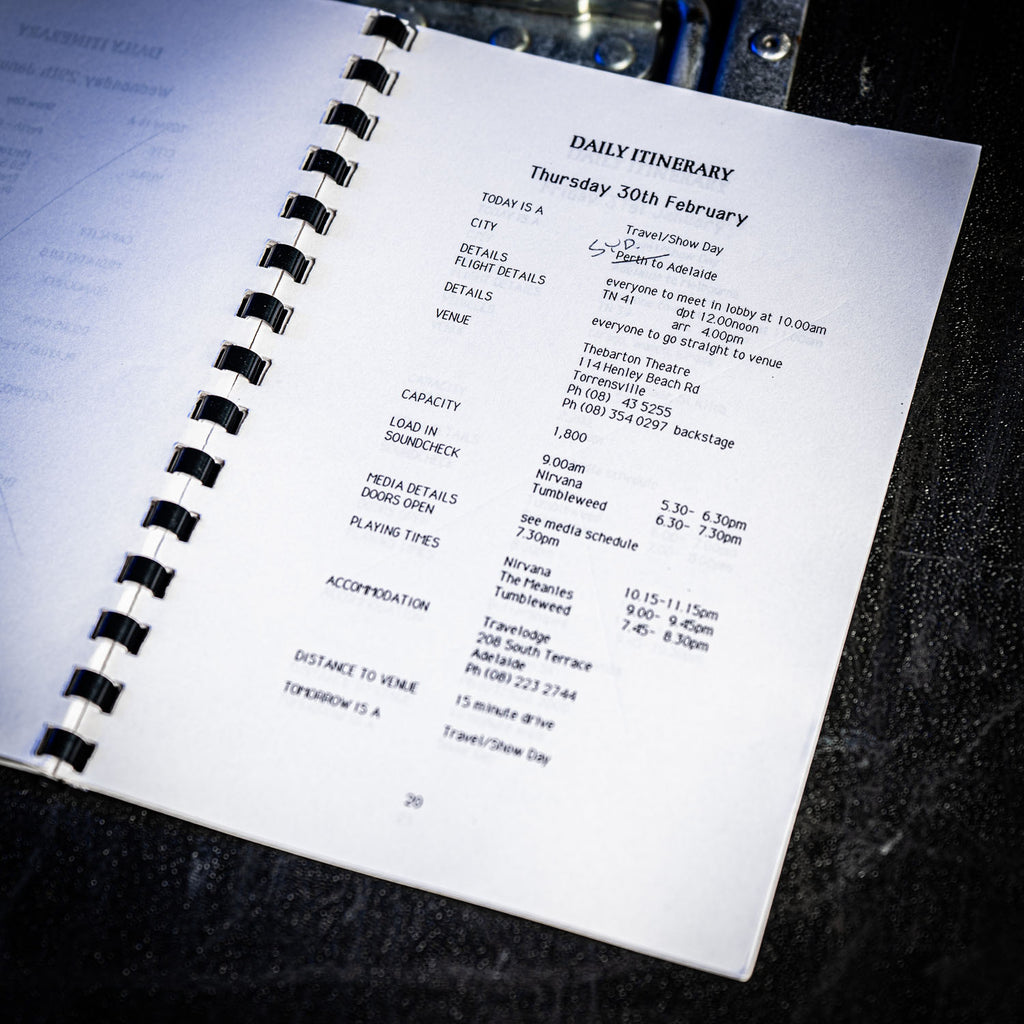 DAILY ITINERARY
Thursday 30th February
TODAY IS A Travel/Show Day
SYD.
CITY Perth to Adelaide
DETAILS everyone to meet in lobby at 10.00am
FLIGHT DETAILS TN 41 dpt 12.00noon
arr 4.00pm
DETAILS everyone to go straight to venue
VENUE Thebarton Theatre
114 Henley Beach Rd
Torrensville
Ph (08) 43 5255
Ph (08) 354 0297 backstage
CAPACITY 1,800
LOAD IN 9.00am
SOUNDCHECK Nirvana 5.30- 6.30pm
Tumbleweed 6.30- 7.30pm
MEDIA DETAILS see media schedule
DOORS OPEN 7.30pm
PLAYING TIMES Nirvana 10.15-11.15pm
The Meanies 9.00- 9.45pm
Tumbleweed 7.45- 8.30pm
ACCOMMODATION Travelodge
208 South Terrace
Adelaide
Ph (08) 223 2744
DISTANCE TO VENUE 15 minute drive
TOMORROW IS A Travel/Show Day
20